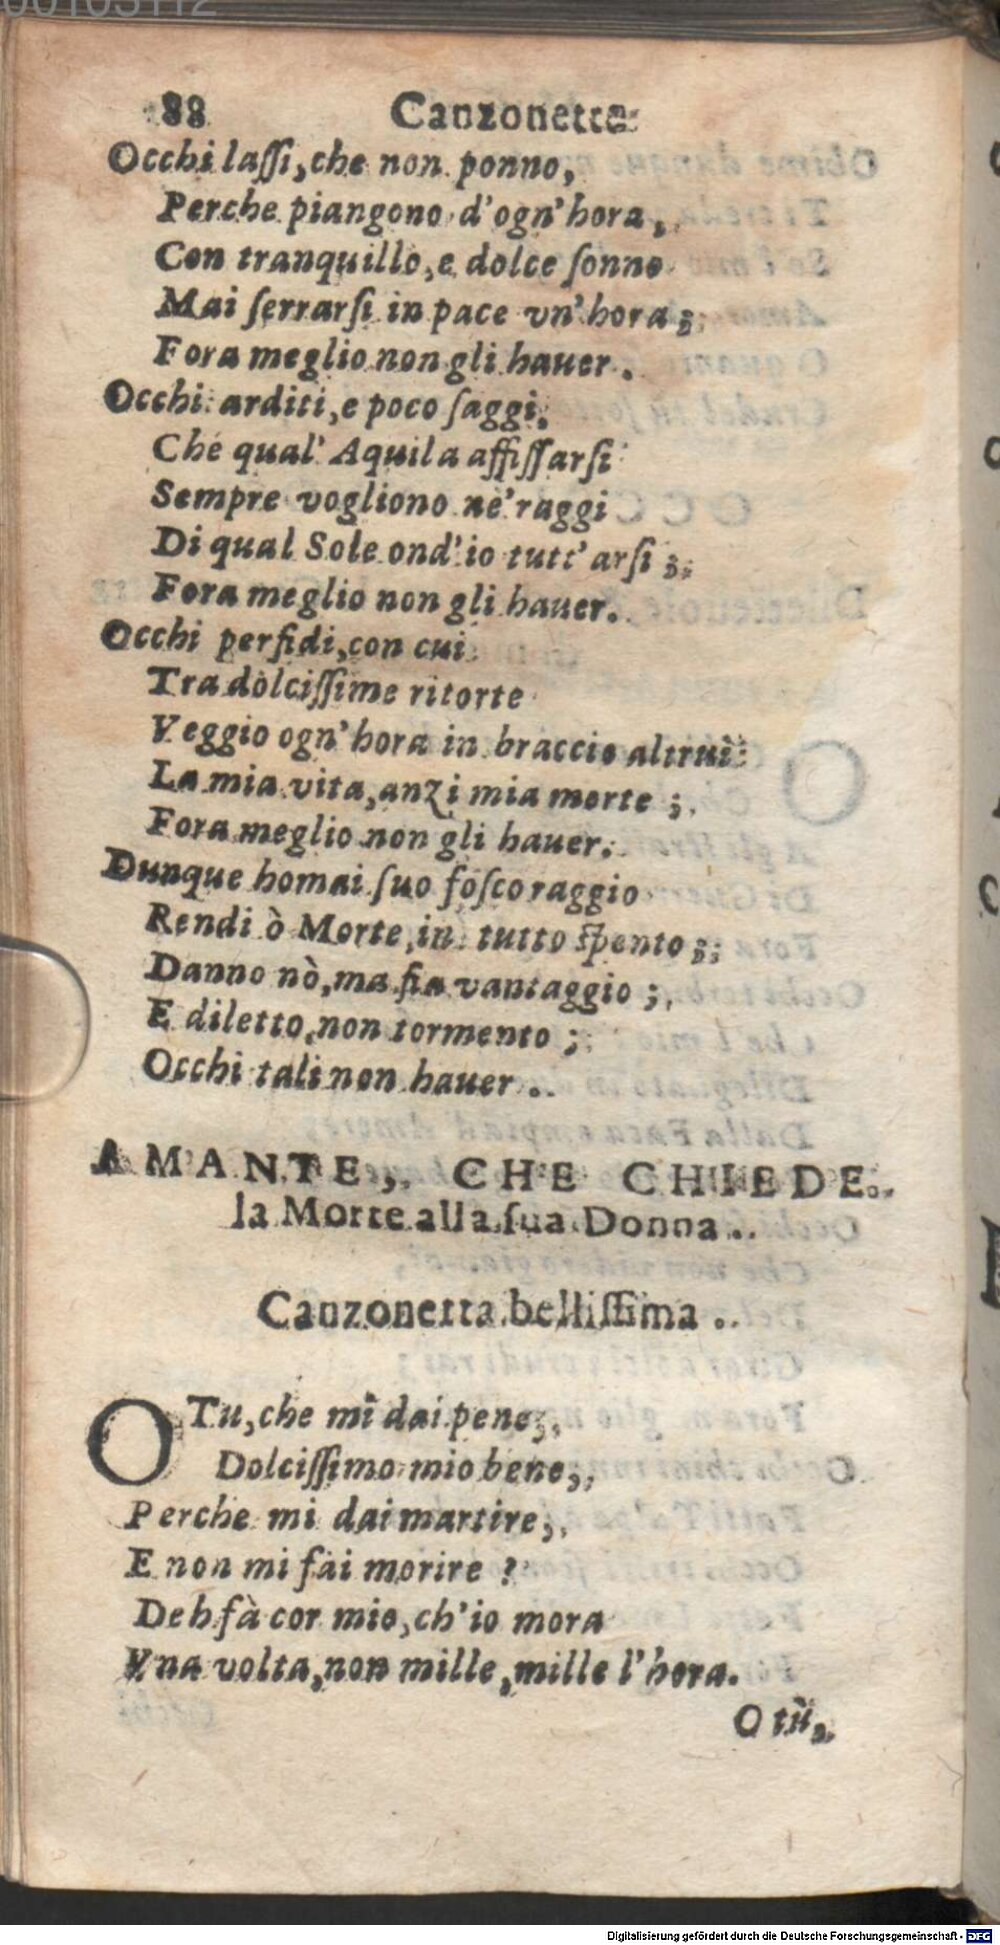 00103112
88 Canzonette
Occhi lassi, che non ponno,
Perche piangono d'ogn'hora,
Con tranquillo, e dolce sonno
Mai serrarsi in pace vn'hora;
Fora meglio non gli hauer.
Occhi arditi, e poco saggi,
Che qual' Aquila affissarsi
Sempre vogliono ne' raggi
Di qual Sole ond'io tutt'arsi;
Fora meglio non gli hauer.
Occhi perfidi, con cui
Tra dolcissime ritorte
Veggio ogn'hora in braccio altrui
La mia vita, anzi mia morte;
Fora meglio non gli hauer.
Dunque homai suo fosco raggio
Rendi ò Morte, in tutto spento;
Danno nò, ma fia vantaggio;
E diletto, non tormento;
Occhi tali non hauer.
AMANTE, CHE CHIEDE
la Morte alla sua Donna.
Canzonetta bellissima.
O Tu, che mi dai pene,
Dolcissimo mio bene,
Perche mi dai martire,
E non mi fai morire?
Deh fà cor mio, ch'io mora
Vna volta, non mille, mille l'hora.
O tù,
Digitalisierung gefördert durch die Deutsche Forschungsgemeinschaft - DFG